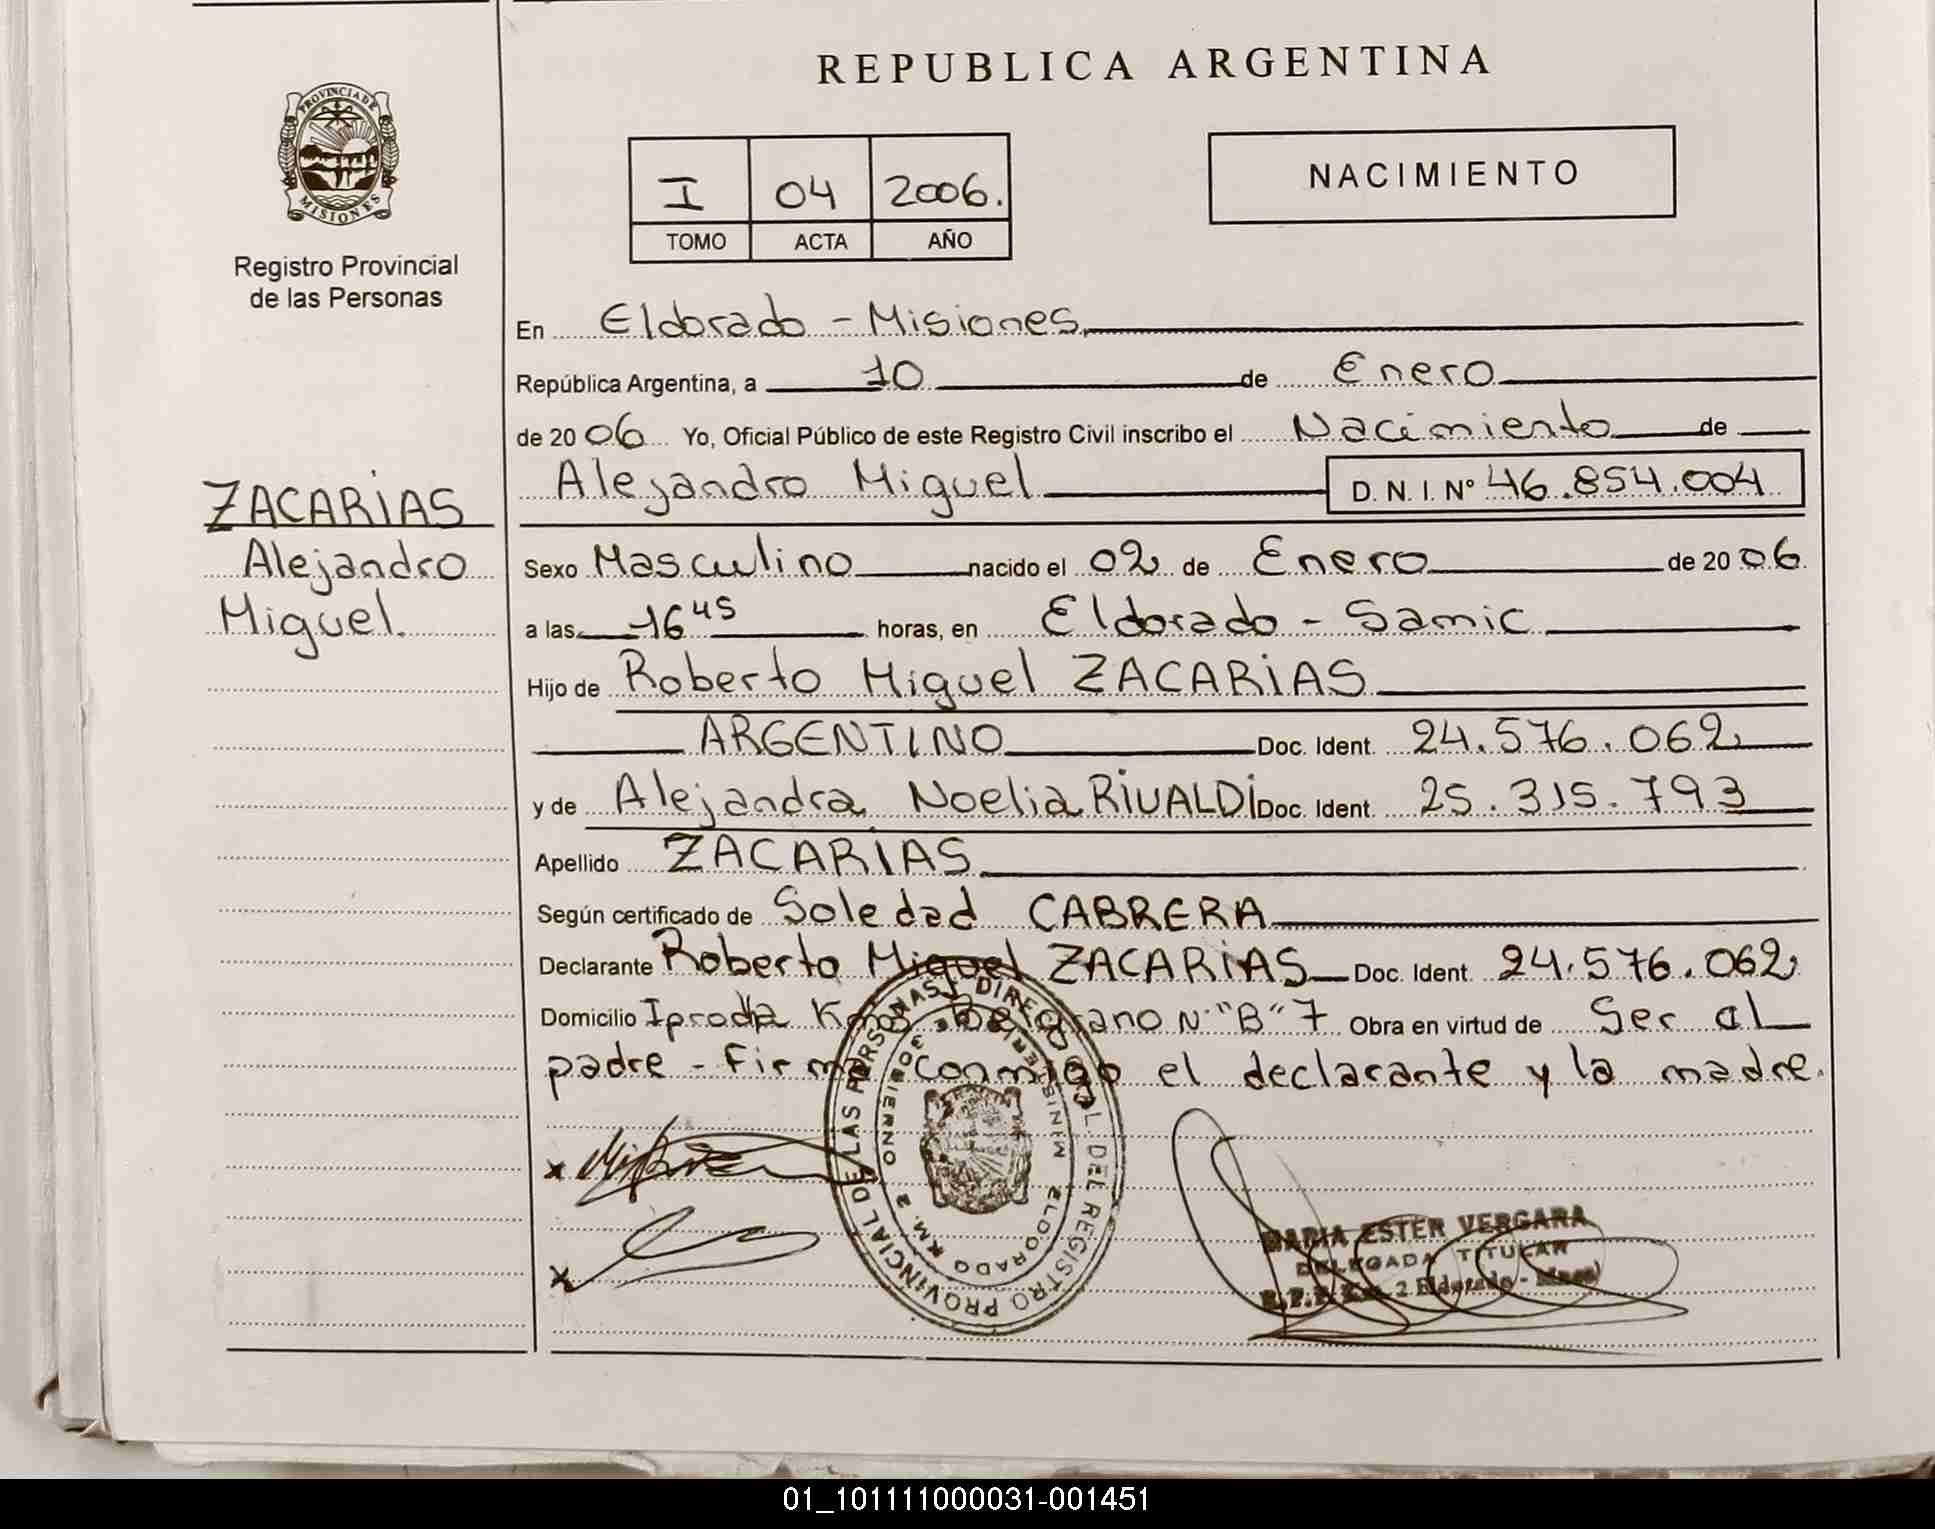 REPUBLICA ARGENTINA
PROVINCIA DE
MISIONES
Registro Provincial
de las Personas
I 04 2006.
TOMO ACTA AÑO
NACIMIENTO
ZACARIAS
Alejandro
Miguel.
En Eldorado - Misiones
República Argentina, a 10 de Enero
de 2006 Yo, Oficial Público de este Registro Civil inscribo el Nacimiento de
Alejandro Miguel D. N. I. Nº 46.854.004
Sexo Masculino nacido el 02 de Enero de 2006.
a las 16 45 horas, en Eldorado - Samic
Hijo de Roberto Miguel ZACARIAS
ARGENTINO Doc. Ident. 24.576.062
y de Alejandra Noelia RIVALDI Doc. Ident. 25.315.793
Apellido ZACARIAS
Según certificado de Soledad CABRERA
Declarante Roberto Miguel ZACARIAS Doc. Ident. 24.576.062
Domicilio Iprodha Belgrano N° "B" 7 Obra en virtud de Ser al
padre - Firma conmigo el declarante y la madre.
DIRECCION GRAL. DEL REGISTRO PROVINCIAL DE LAS PERSONAS
GOBIERNO
ELDORADO KM. 2
MARIA ESTER VERGARA
DELEGADA TITULAR
2 Eldorado - Mnes)
01_101111000031-001451